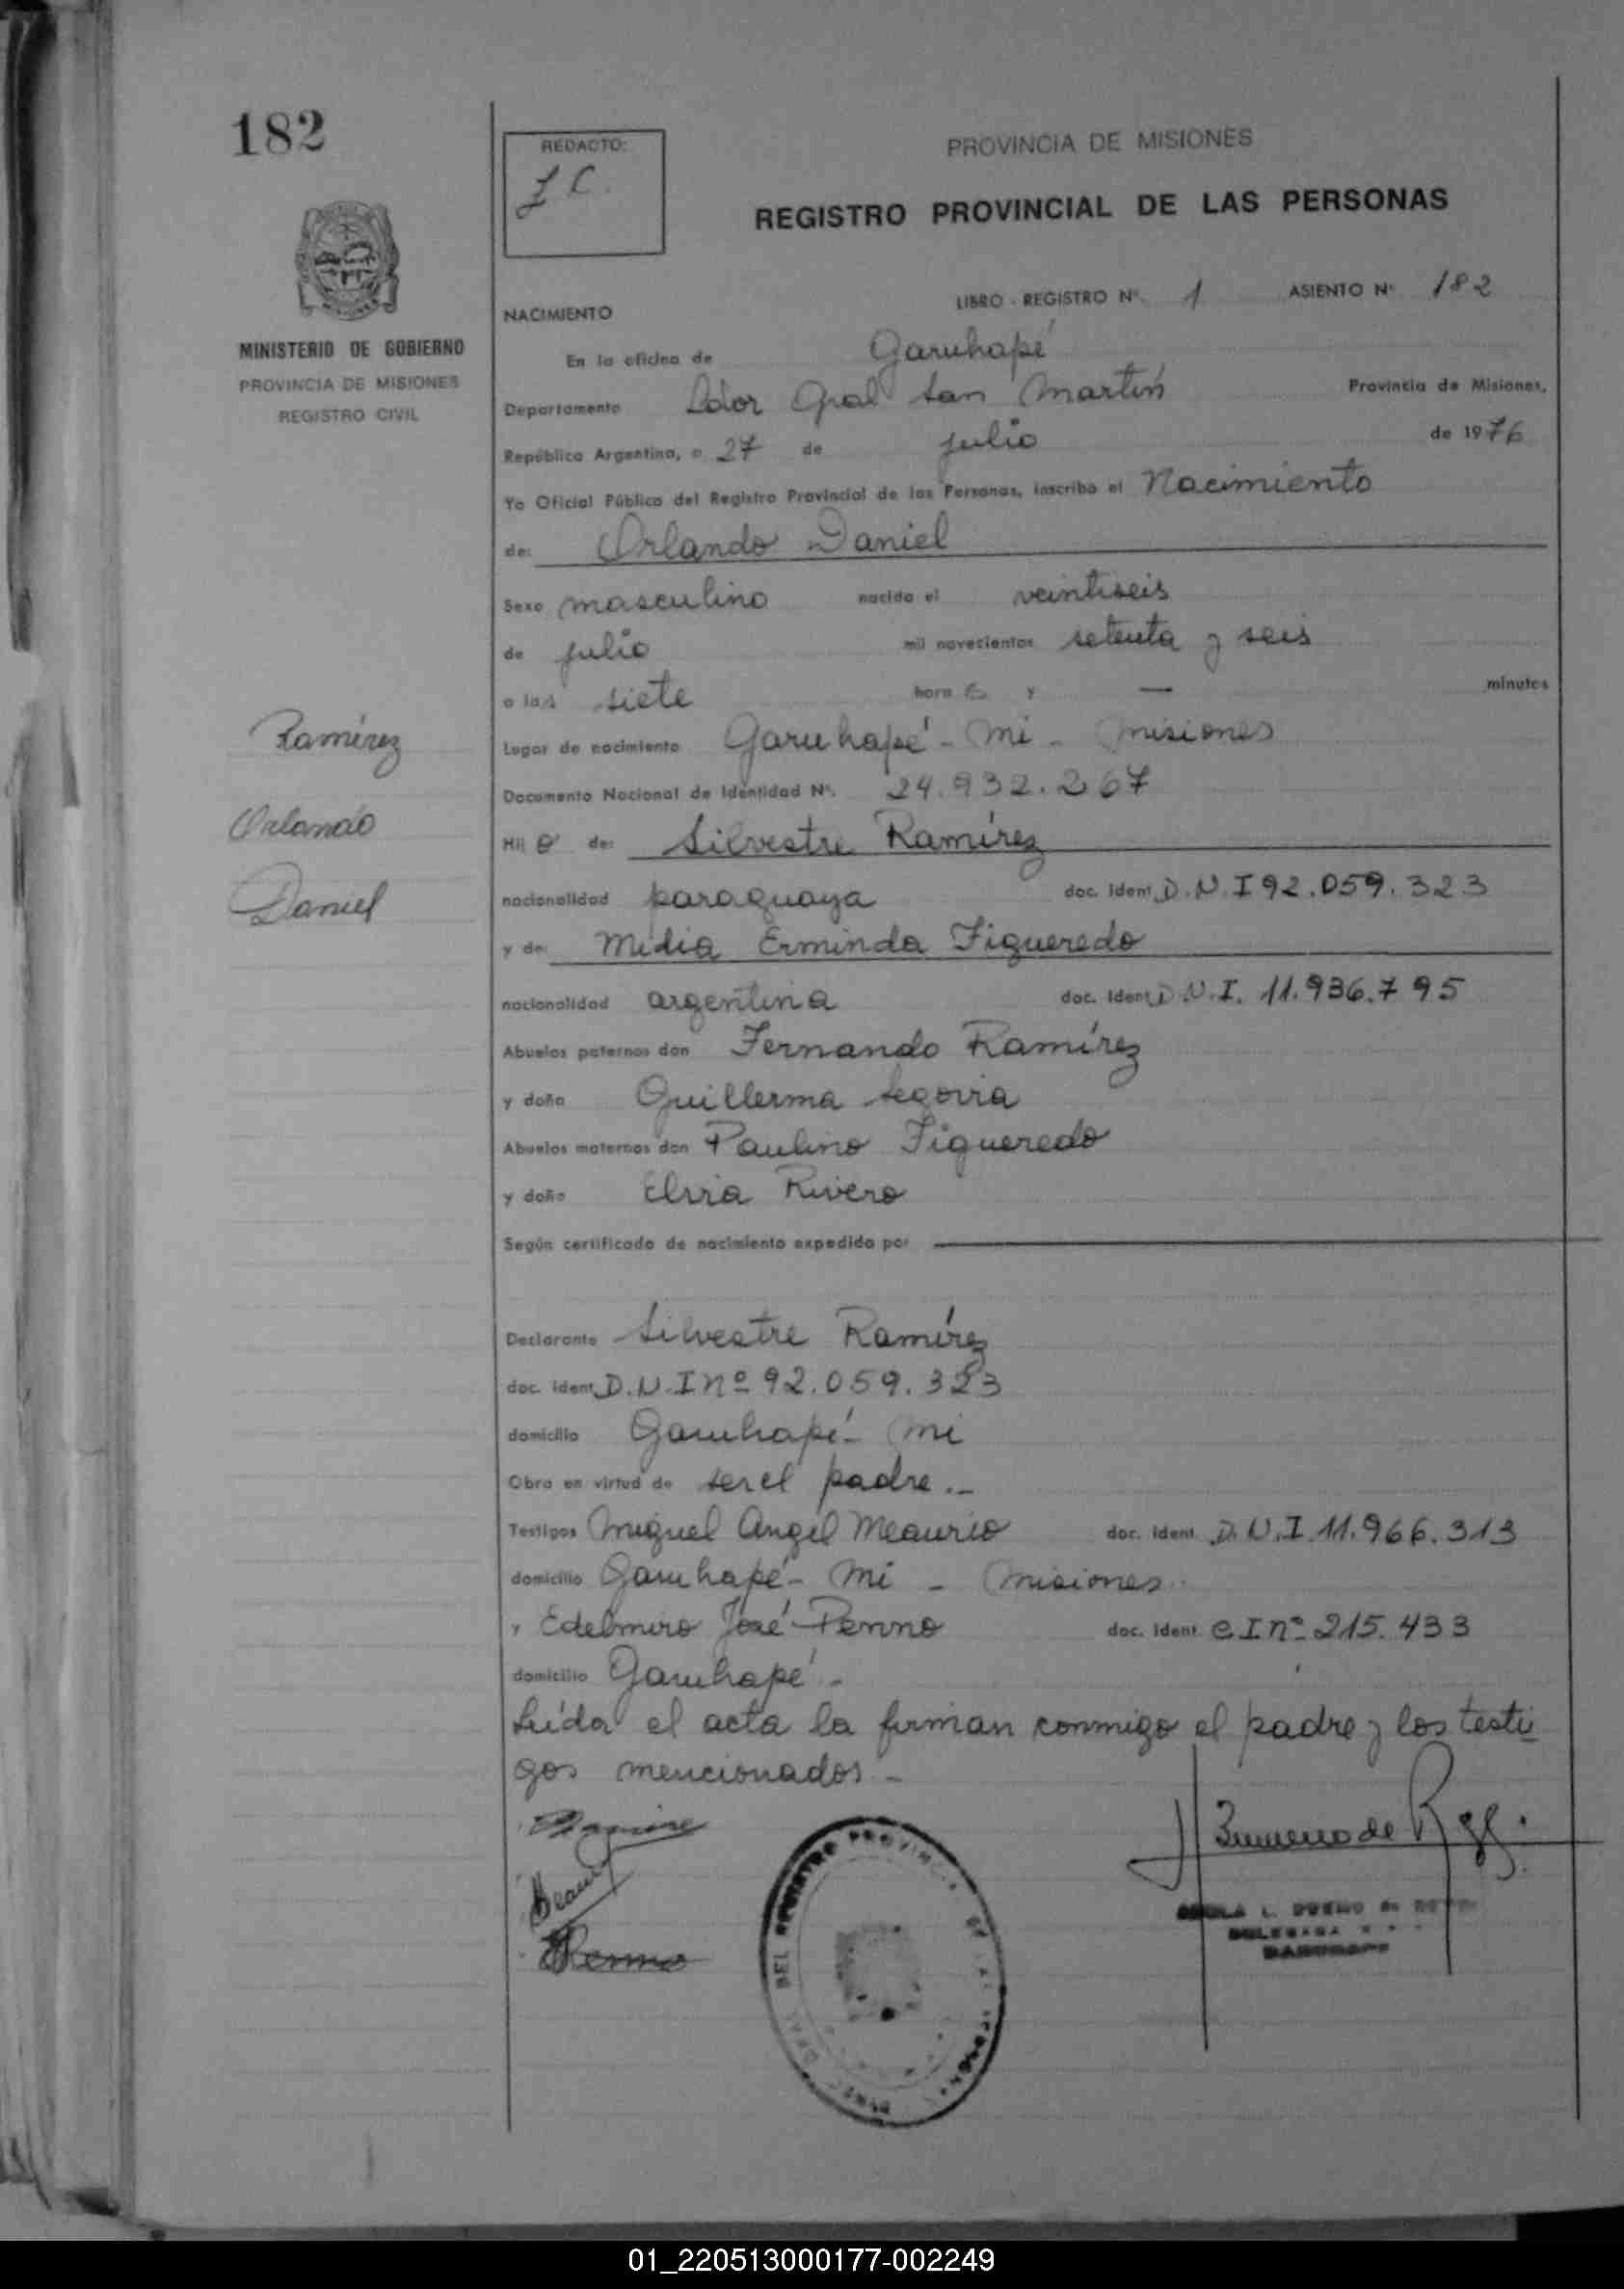 182
REDACTO:
Z C.
PROVINCIA DE MISIONES
REGISTRO PROVINCIAL DE LAS PERSONAS
MINISTERIO DE GOBIERNO
PROVINCIA DE MISIONES
REGISTRO CIVIL
LIBRO - REGISTRO Nº. 1 ASIENTO Nº 182
NACIMIENTO
En la oficina de Garuhapé
Departamento Ldor Gral San Martín Provincia de Misiones,
República Argentina, a 27 de julio de 1976
Yo Oficial Público del Registro Provincial de las Personas, inscribo el Nacimiento
de: Orlando Daniel
Sexo masculino nacido el veintiseis
de julio mil novecientos setenta y seis
a las siete hora s y — minutos
Lugar de nacimiento Garuhapé - Mi - Misiones
Documento Nacional de Identidad Nº. 24.932.267
Hij o de: Silvestre Ramírez
nacionalidad paraguaya doc. ident. D.N.I 92.059.323
y de: Midia Erminda Figueredo
nacionalidad argentina doc. ident. D.N.I. 11.936.795
Abuelos paternos don Fernando Ramírez
y doña Guillerma Segovia
Abuelos maternos don Paulino Figueredo
y doña Elvia Rivero
Según certificado de nacimiento expedido por
Ramírez
Orlando
Daniel
Declarante Silvestre Ramírez
doc. ident. D.N.I Nº 92.059.323
domicilio Garuhapé - Mi
Obra en virtud de ser el padre.-
Testigos Miguel Angel Meaurio doc. ident. D.N.I. 11.966.313
domicilio Garuhapé - Mi - Misiones.
y Edelmiro José Penno doc. ident. C I nº 215.433
domicilio Garuhapé.-
Leída el acta la firman conmigo el padre y los testi
gos mencionados.-
Penno
DEL REGISTRO PROVINCIAL DE LAS PERSONAS
01_220513000177-002249